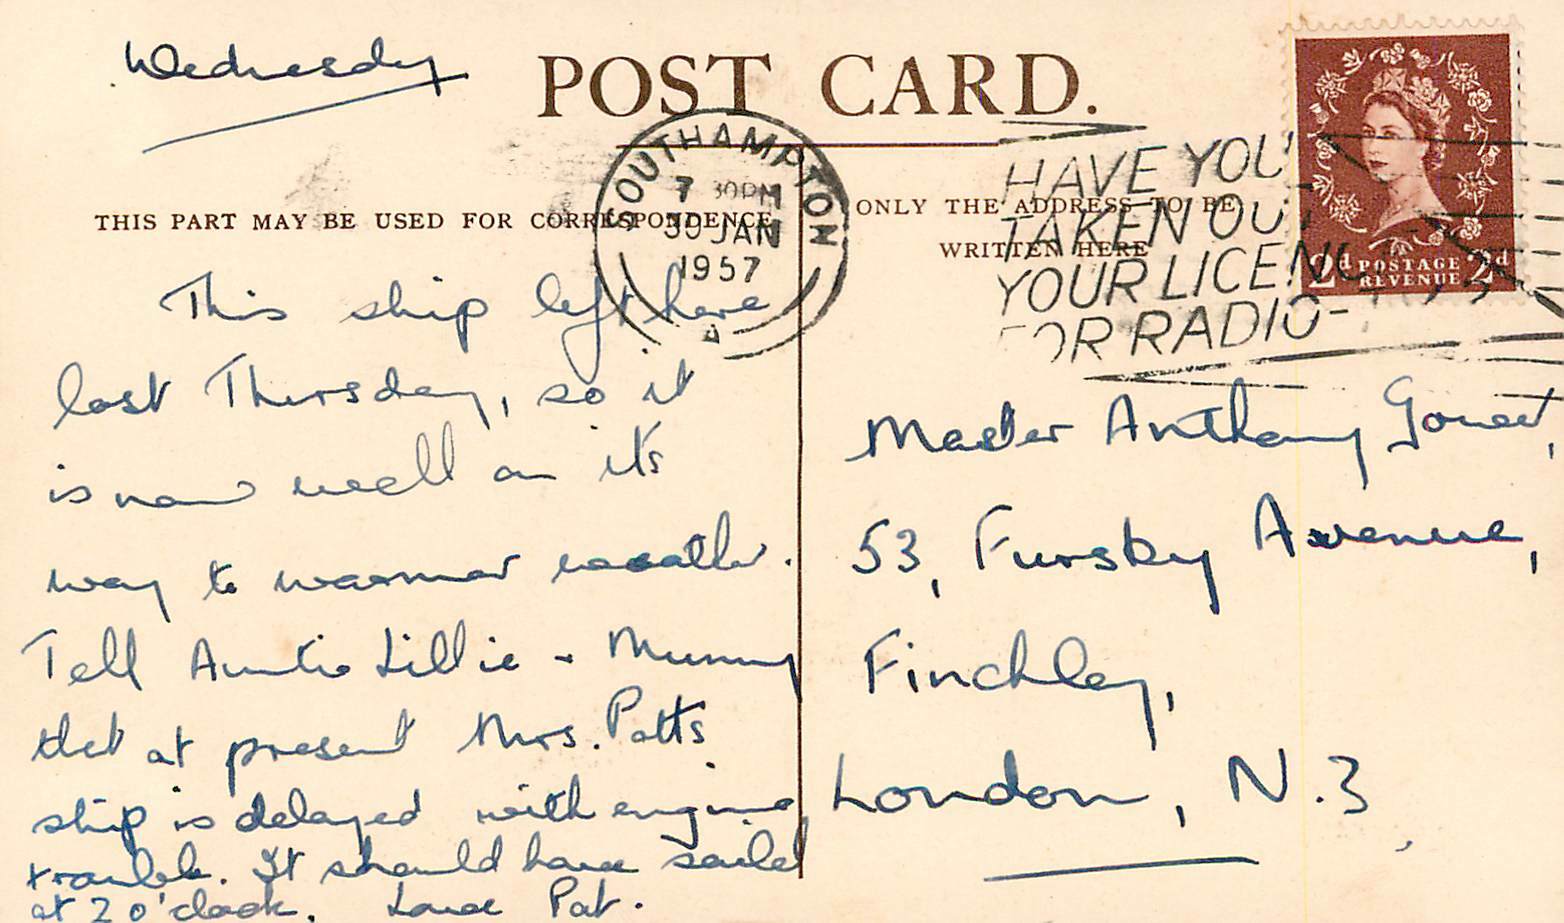 Wednesday
POST CARD.
SOUTHAMPTON
7 30PM
30 JAN
1957
A
HAVE YOU
TAKEN OUT
YOUR LICENCE
FOR RADIO-
2d POSTAGE 2d
REVENUE
THIS PART MAY BE USED FOR CORRESPONDENCE
ONLY THE ADDRESS TO BE
WRITTEN HERE
This ship left here
last Thursday, so it
is now well on it's
way to warmer weather.
Tell Auntie Lillie + Mummy
that at present Mrs. Potts
ship is delayed with engine
trouble. It should have sailed
at 2 o'clock. Love Pat.
Master Anthony
53, Fursby Avenue,
Finchley,
London, N.3